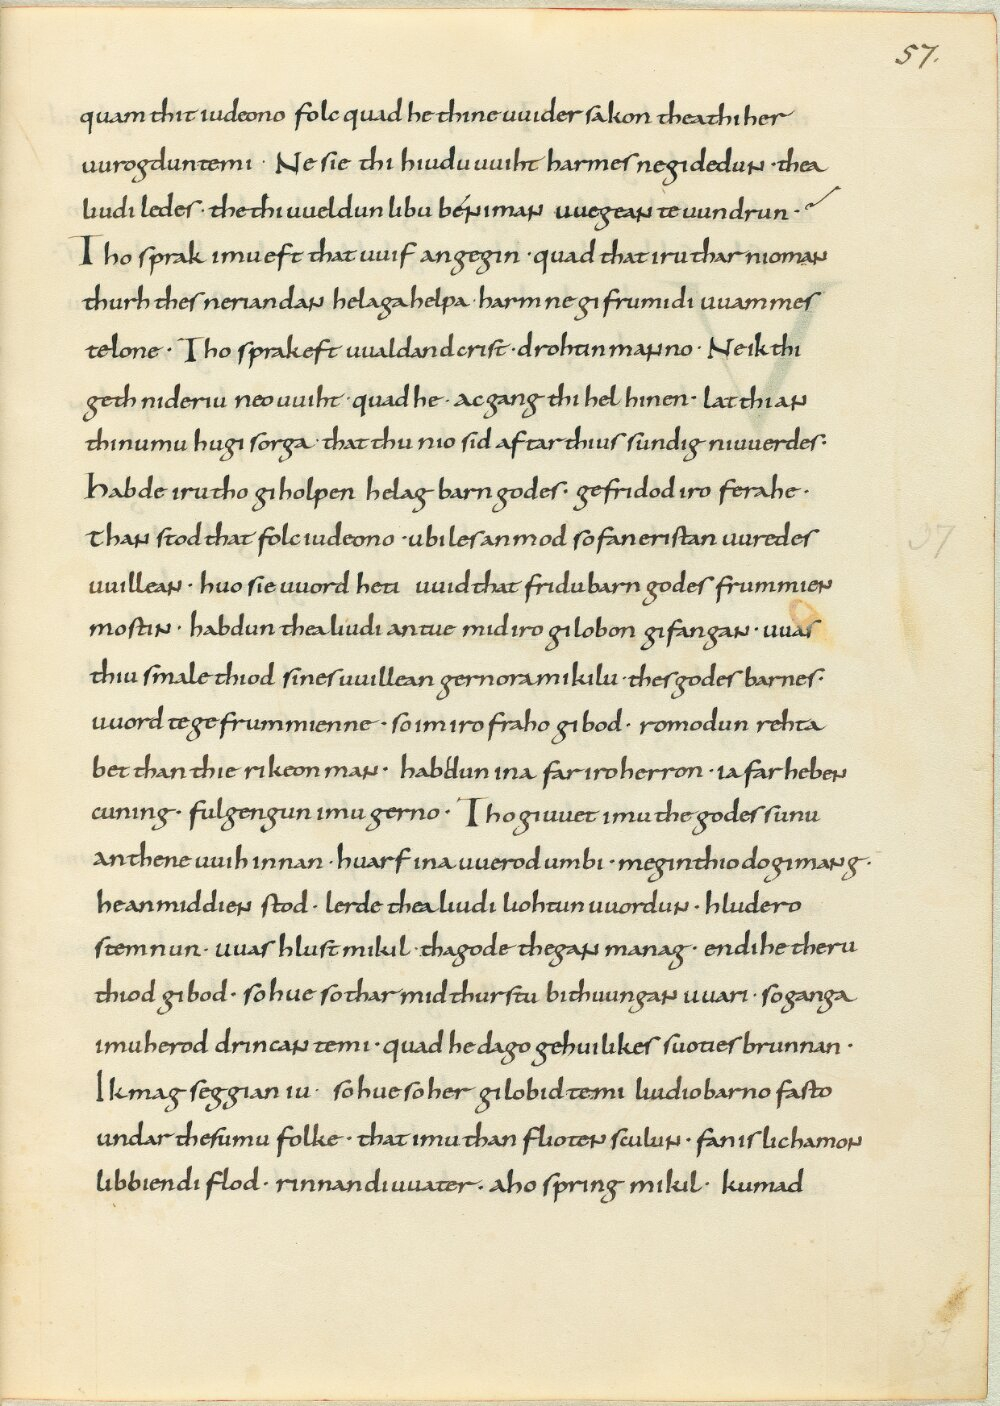 57.
quam thit iudeono folc quad he thine uuider sakon thea thi her
uurogdun te mi · Ne sie thi hiudu uuiht harmes ne gidedun · thea
liudi ledes · the thi uueldun libu beniman uuegean te uundrun ·
Tho sprak imu eft that uuif angegin · quad that iru thar nioman
thurh thes neriandan helaga helpa · harm ne gifrumidi uuammes
te lone · Tho sprak eft uualdand crist · drohtin manno · Ne ik thi
geth nideriu neouuiht · quad he · ac gang thi hel hinen · lat thi an
thinumu hugi sorga · that thu nio sid aftar thius sundig ni uuerdes ·
habde iru tho giholpen helag barn godes · gefridod iro ferahe ·
than stod that folc iudeono · ubiles anmod so fan eristan uuredes
uuillean · huo sie uuord heti uuid that fridubarn godes frummien
mostin · habdun thea liudi an tue mid iro gilobon gifangan · uuas
thiu smale thiod sines uuillean gernora mikilu · thes godes barnes ·
uuord te gefrummienne · so im iro fraho gibod · romodun rehta
bet than thie rikeon man · habdun ina far iro herron · ia far heben
cuning · fulgengun imu gerno · Tho giuuet imu the godes sunu
an thene uuih innan · huarf ina uuerod umbi · meginthiodo gimang ·
he an middien stod · lerde thea liudi liohtun uuordun · hludero
stemnun · uuas hlust mikil · thagode thegan manag · endi he theru
thiod gibod · so hue so thar mid thurstu bithuungan uuari · so ganga
imu herod drincan te mi · quad he dago gehuilikes suoties brunnan ·
Ik mag seggian iu · so hue so her gilobid te mi liudio barno fasto
undar thesumu folke · that imu than flioten sculun · fan is lichamon
libbiendi flod · rinnandi uuater · aho spring mikil · kumad